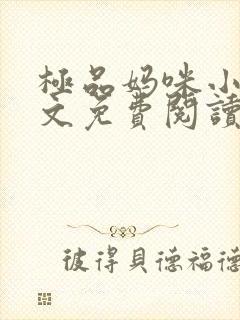 極品妈咪小
文免費閱讀
彼得貝德福德